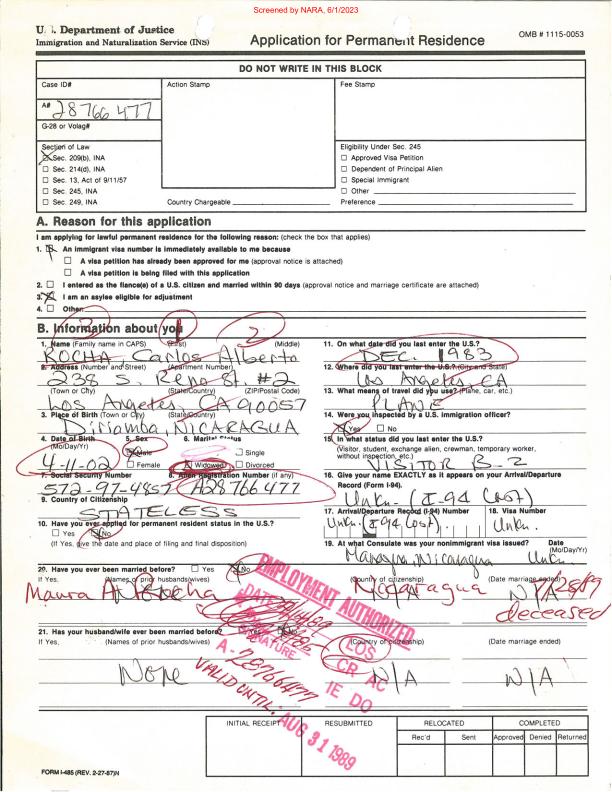 Screened by NARA, 6/1/2023
U.S. Department of Justice
Immigration and Naturalization Service (INS)
Application for Permanent Residence
OMB # 1115-0053
DO NOT WRITE IN THIS BLOCK
Case ID#
Action Stamp
Fee Stamp
A# 28766 477
G-28 or Volag#
Section of Law
☒ Sec. 209(b), INA
☐ Sec. 214(d), INA
☐ Sec. 13, Act of 9/11/57
☐ Sec. 245, INA
☐ Sec. 249, INA
Country Chargeable
Eligibility Under Sec. 245
☐ Approved Visa Petition
☐ Dependent of Principal Alien
☐ Special Immigrant
☐ Other
Preference
A. Reason for this application
I am applying for lawful permanent residence for the following reason: (check the box that applies)
1. ☐ An immigrant visa number is immediately available to me because
☐ A visa petition has already been approved for me (approval notice is attached)
☐ A visa petition is being filed with this application
2. ☐ I entered as the fiance(e) of a U.S. citizen and married within 90 days (approval notice and marriage certificate are attached)
3. ☒ I am an asylee eligible for adjustment
4. ☐ Other:
B. Information about you
3 1 2
1. Name (Family name in CAPS) (First) (Middle)
ROCHA, Carlos Alberto
2. Address (Number and Street) (Apartment Number)
238 S. Reno St. #2
(Town or City) (State/Country) (ZIP/Postal Code)
Los Angeles, CA 90057
3. Place of Birth (Town or City) (State/Country)
Diriamba, NICARAGUA
4. Date of Birth (Mo/Day/Yr)
4-11-02
5. Sex
☒ Male
☐ Female
6. Marital Status
☐ Single
☒ Widowed
☐ Divorced
7. Social Security Number
572-97-4857
8. Alien Registration Number (if any)
A28766477
9. Country of Citizenship
STATELESS
10. Have you ever applied for permanent resident status in the U.S.?
☐ Yes ☒ No
(If Yes, give the date and place of filing and final disposition)
11. On what date did you last enter the U.S.?
DEC. 1983
12. Where did you last enter the U.S.? (City and State)
Los Angeles, CA
13. What means of travel did you use? (Plane, car, etc.)
PLANE
14. Were you inspected by a U.S. immigration officer?
☒ Yes ☐ No
15. In what status did you last enter the U.S.?
(Visitor, student, exchange alien, crewman, temporary worker, without inspection, etc.)
VISITOR B-2
16. Give your name EXACTLY as it appears on your Arrival/Departure Record (Form I-94).
Unkn. (I-94 lost)
17. Arrival/Departure Record (I-94) Number
Unkn. (I-94 lost).
18. Visa Number
Unkn.
19. At what Consulate was your nonimmigrant visa issued? Date (Mo/Day/Yr)
Managua, Nicaragua Unkn.
20. Have you ever been married before? ☐ Yes ☒ No
If Yes, (Names of prior husbands/wives) (Country of citizenship) (Date marriage ended)
Maura Rocha Nicaragua N/A
deceased
21. Has your husband/wife ever been married before? ☐ Yes ☒ No
If Yes, (Names of prior husbands/wives) (Country of citizenship) (Date marriage ended)
None N/A N/A
EMPLOYMENT AUTHORIZED
DATE
SIGNATURE
LOS
A-28766477
VALID UNTIL: AUG 31 1989
INITIAL RECEIPT
RESUBMITTED
RELOCATED
Rec'd Sent
COMPLETED
Approved Denied Returned
FORM I-485 (REV. 2-27-87)N